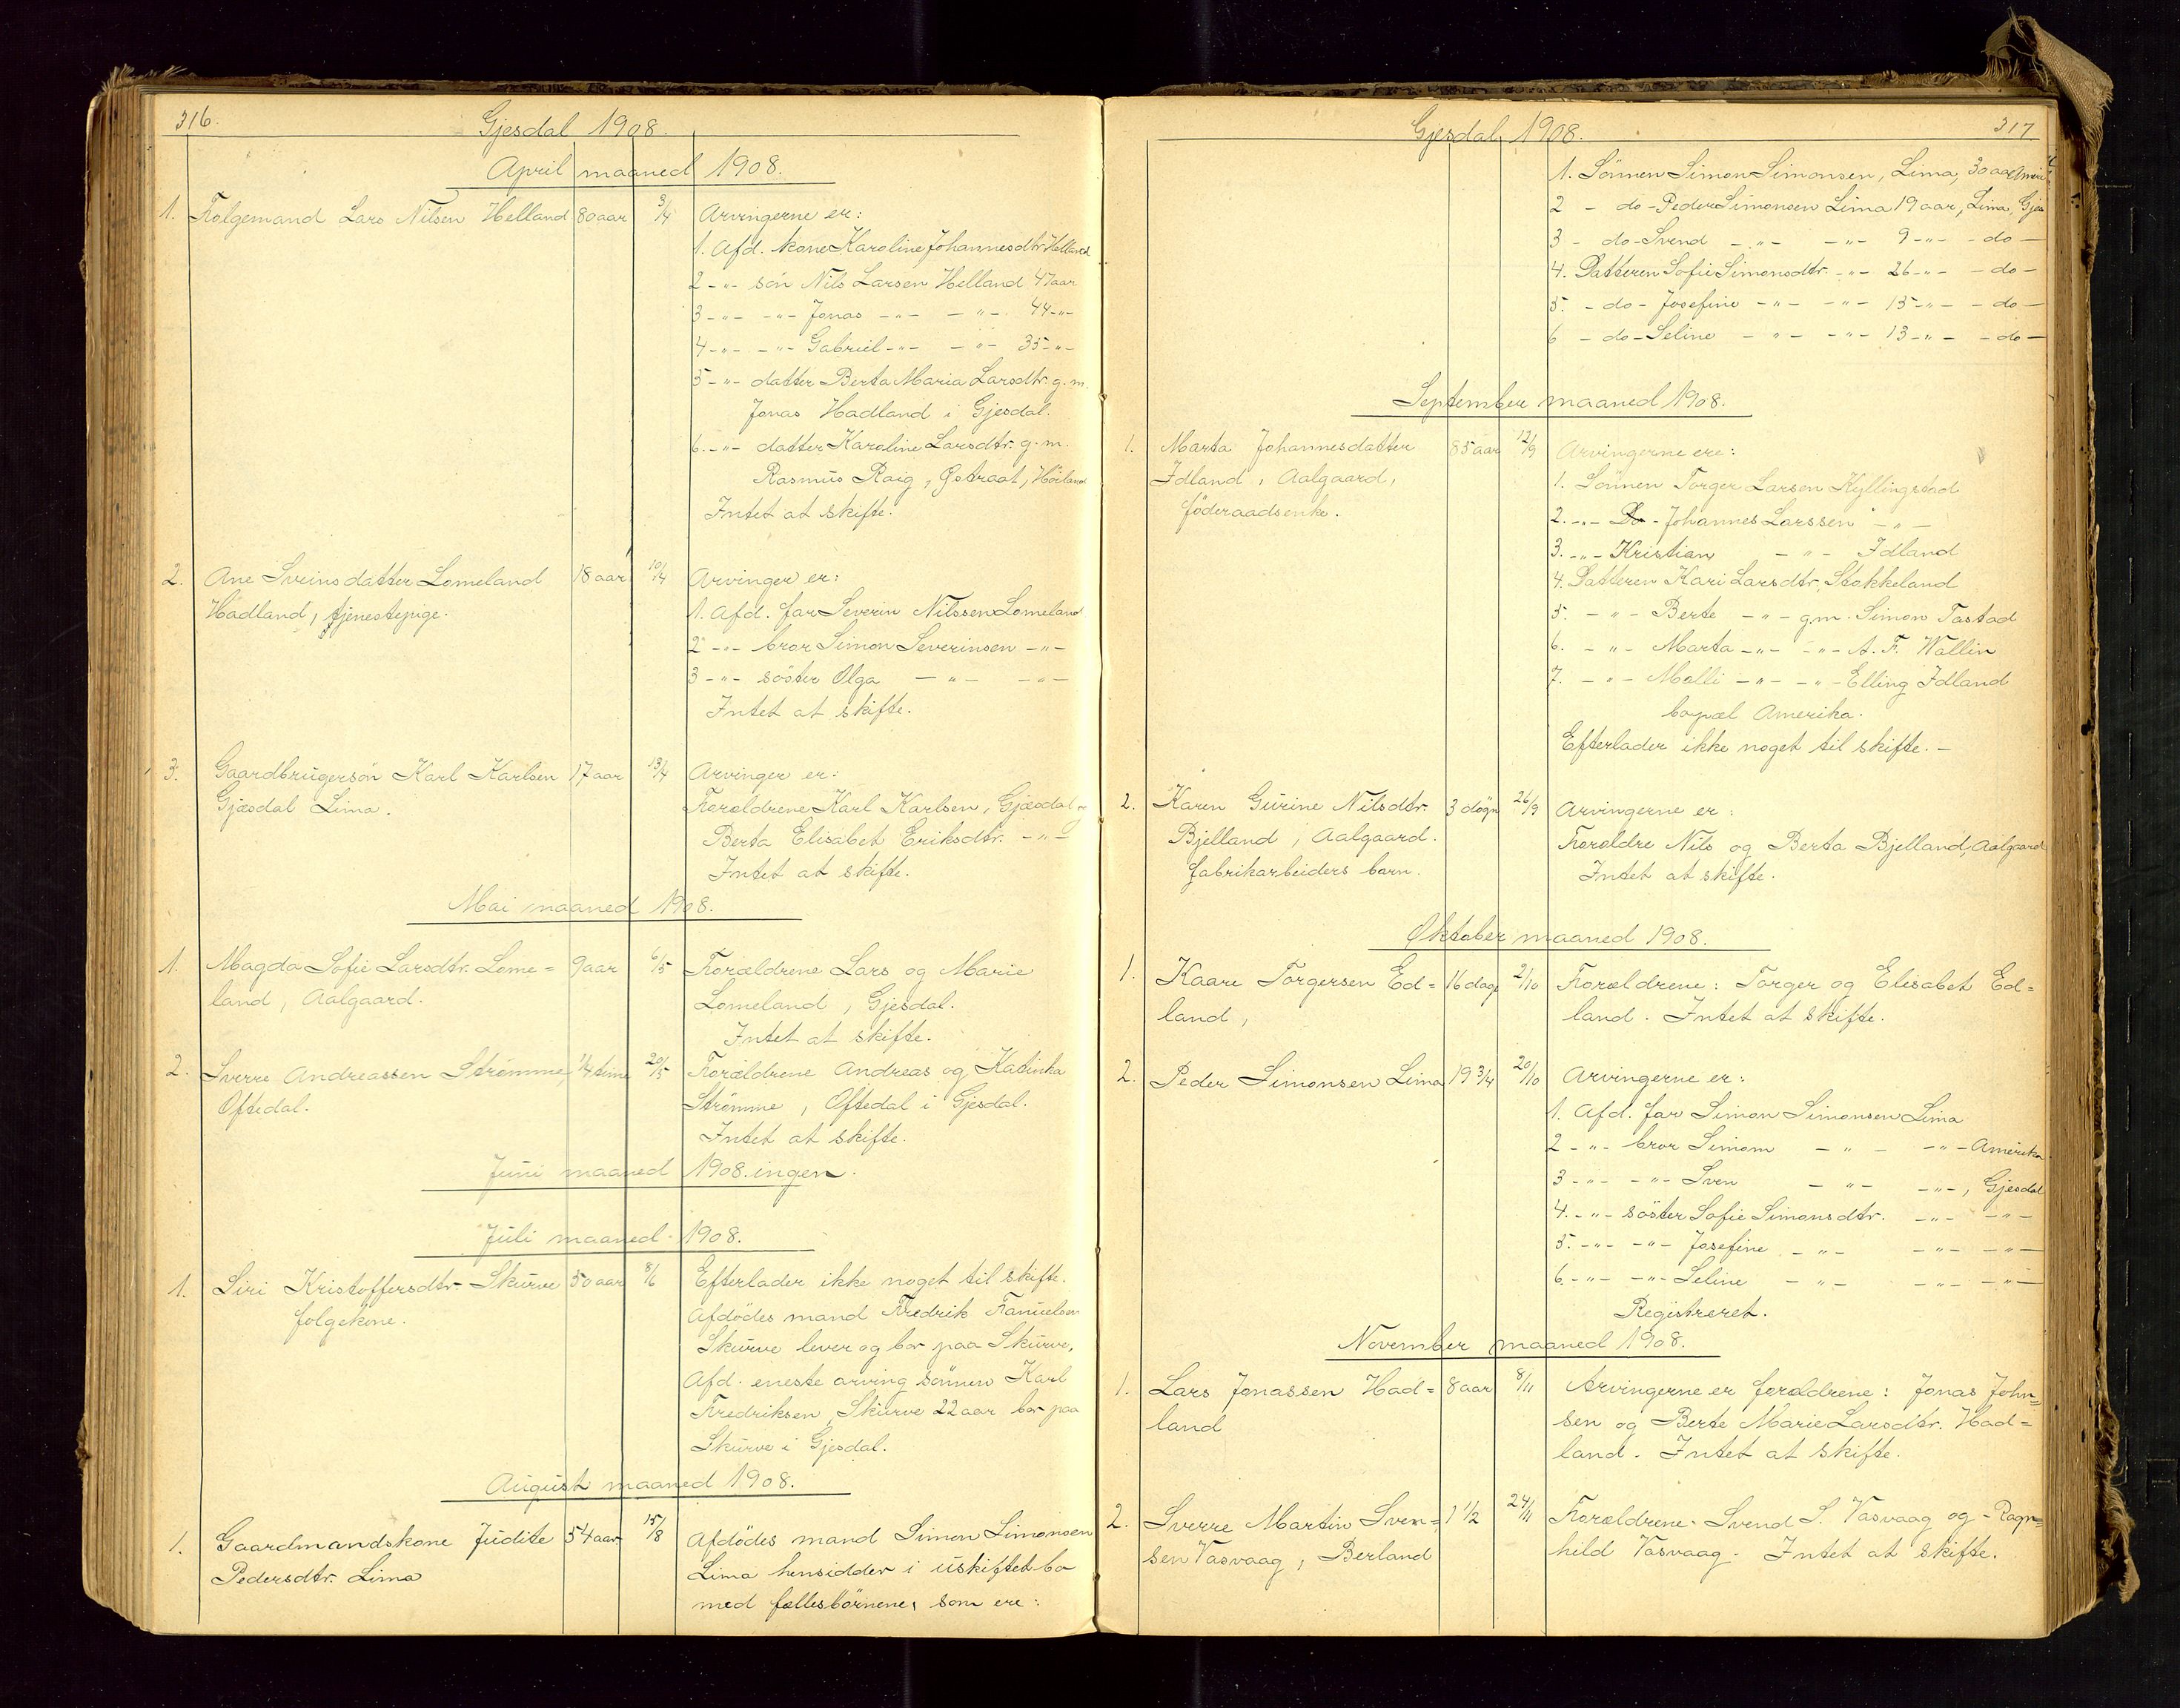 316.
Gjesdal 1908.
April maaned 1908.
1. Folgemand Lars Nilsen Helland 80 aar 3/4 Arvingerne er:
1. Afd. kone Karoline Johannesdtr. Helland
2 -"- søn Nils Larsen Helland 47 aar
3 -"- -"- Jonas -"- -"- 44 -"-
4 -"- -"- Gabriel -"- -"- 35 -"-
5 -"- datter Berta Maria Larsdtr. g.m.
Jonas Hadland i Gjesdal.
6. -"- datter Karoline Larsdtr. g.m.
Rasmus Raig, Østraat, Høiland
Intet at skifte.
2. Ane Sveinsdatter Lomeland 18 aar 10/4 Arvinger er:
Hadland, tjenestepige.
1. Afd. far Severin Nilssen Lomeland
2 -"- bror Simon Severinsen -"-
3 -"- søster Olga -"- -"-
Intet at skifte.
3. Gaardbrugersøn Karl Karlsen 17 aar 13/4 Arvinger er:
Gjæsdal Lima.
Forældrene Karl Karlsen, Gjæsdal og
Berta Elisabet Eriksdtr. -"-
Intet at skifte.
Mai maaned 1908.
1. Magda Sofie Larsdtr. Lome= 9 aar 6/5 Forældrene Lars og Marie
land, Aalgaard. Lomeland, Gjesdal.
Intet at skifte.
2. Sverre Andreassen Strømme, 1/4 time 20/5 Forældrene Andreas og Katinka
Oftedal. Strømme, Oftedal i Gjesdal.
Intet at skifte.
Juni maaned 1908. ingen.
Juli maaned 1908.
1. Siri Kristoffersdtr. Skurve 50 aar 8/6 Efterlader ikke noget til skifte.
folgekone. Afdødes mand Fredrik Fanuelsen
Skurve lever og bor paa Skurve,
Afd. eneste arving sønnen Karl
Fredriksen Skurve 22 aar bor paa
Skurve i Gjesdal.
August maaned 1908.
1. Gaardmandskone Judite 54 aar 15/8 Afdødes mand Simon Simonsen
Pedersdtr. Lima Lima hensidder i uskiftet bo
med fællesbørnene, som ere:
Gjesdal 1908.
317
1. Sønnen Simon Simonsen, Lima, 30 aar
2 - do - Peder Simonsen Lima 19 aar, Lima, Gjes
3 - do - Svend -"- -"- 9 -"- - do -
4. Datteren Sofie Simonsdtr. -"- 26 -"- - do -
5. - do - Josefine -"- -"- 15 -"- - do -
6 - do - Seline -"- -"- 13 -"- - do -
September maaned 1908.
1. Marta Johannesdatter 85 aar 12/9 Arvingerne ere:
Idland, Aalgaard,
føderaadsenke.
1. Sønnen Torger Larsen Kyllingstad
2. -"- Do - Johannes Larssen -"-
3. -"- Kristian -"- Idland
4. Datteren Kari Larsdtr. Stokkeland
5. -"- Berte -"- g.m. Simon Tastad
6. -"- Marta -"- -"- A. F. Wallin
7. -"- Malli -"- -"- Elling Idland
bopæl Amerika.
Efterlader ikke noget til skifte. -
2. Karen Gurine Nilsdtr. 3 døgn 26/9 Arvingerne er:
Bjelland, Aalgaard. Forældre Nils og Berta Bjelland, Aalgaard
fabrikarbeiders barn. Intet at skifte.
Oktober maaned 1908.
1. Kaare Torgersen Ed= 16 dage 2/10 Forældrene: Torger og Elisabet Ed=
land, land. Intet at skifte.
2. Peder Simonsen Lima 19 3/4 20/10 Arvingerne er:
1. Afd. far Simon Simonsen Lima
2 -"- bror Simon -"- -"- Amerika
3 -"- -"- Sven -"- -"-, Gjesdal
4. -"- søster Sofie Simonsdtr. -"- -"-
5. -"- -"- Josefine -"- -"- -"-
6. -"- -"- Seline -"- -"- -"-
Registreret.
November maaned 1908.
1. Lars Jonassen Had= 8 aar 8/11 Arvingerne er forældrene: Jonas John=
land sen og Berte Marie Larsdtr. Had=
land. Intet at skifte.
2. Sverre Martin Sven= 1 1/2 24/11 Forældrene - Svend S. Vasvaag og - Ragn=
sen Vasvaag, Berland hild Vasvaag. Intet at skifte.